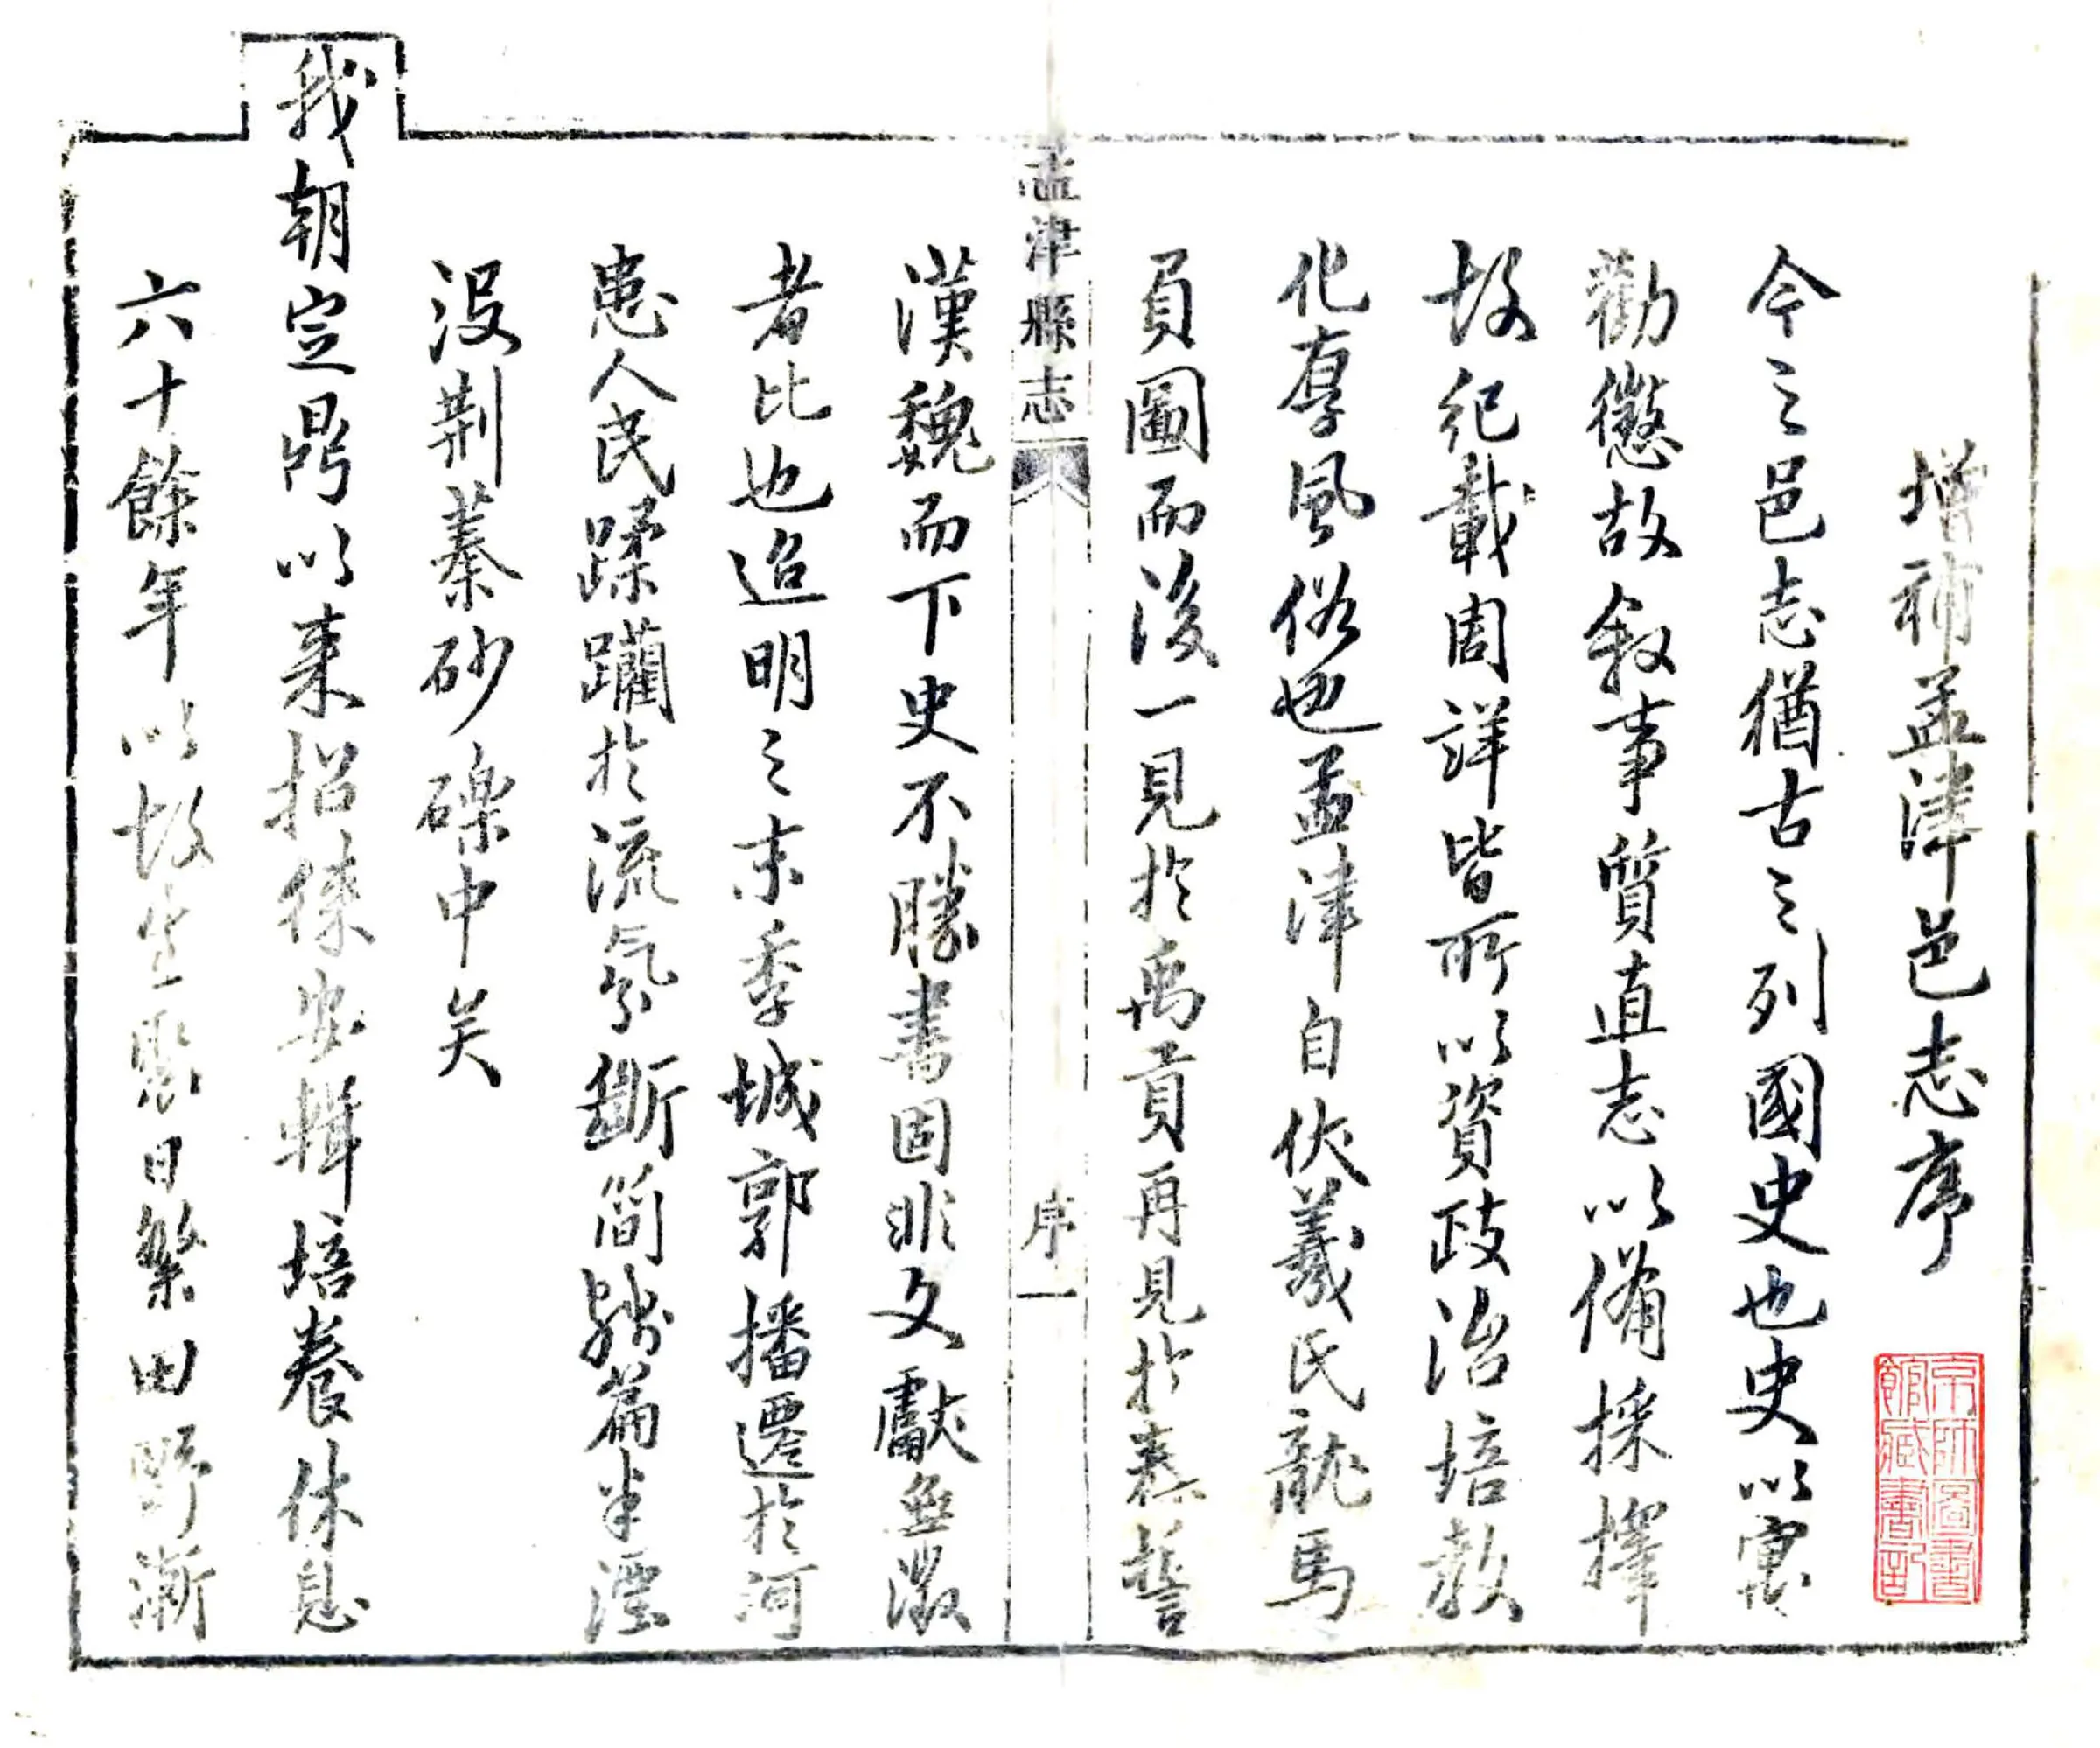 增補孟津邑志序
今之邑志猶古之列國史也史以寓
勸懲故叙事質直志以備採擇
故紀載周詳皆所以資政治培教
化厚風俗也孟津自伏羲氏龍馬
負圖而後一見於禹貢再見於泰誓
孟津縣志
序一
漢魏而下史不勝書固非文獻無徵
者比也迨明之末季城郭播遷於河
患人民蹂躪於流氛斷簡殘篇半湮
沒荆蓁砂礫中矣
我朝定鼎以来招徠安輯培養休息
六十餘年以故生聚日繁田野漸
京師圖書
館藏書記